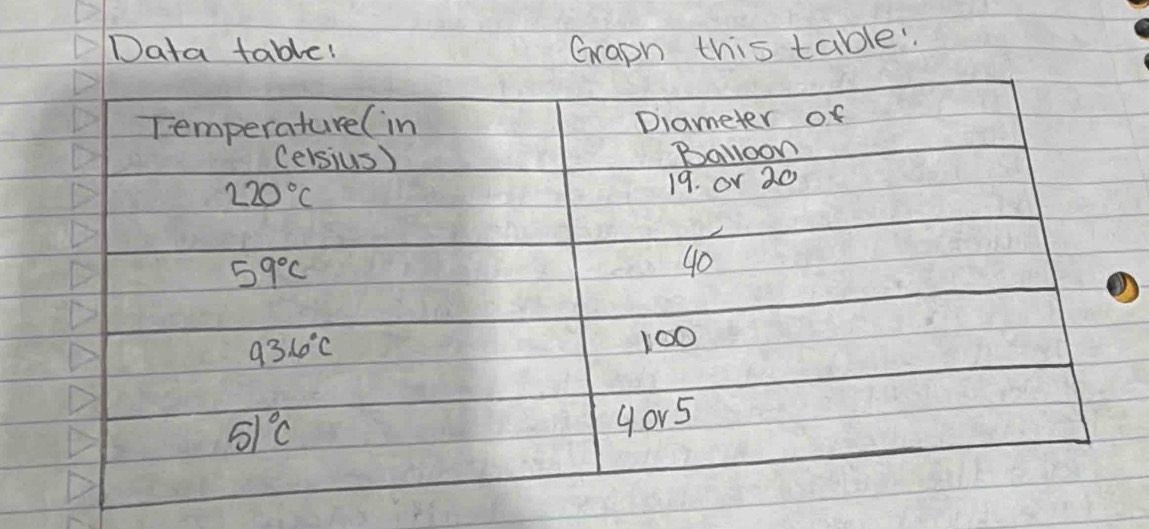 Data table: Graph this table:
Temperature (in Diameter of
Celsius) Balloon
220°C 19. or 20
59°C 40
93.6°C 100
51°C 4 or 5